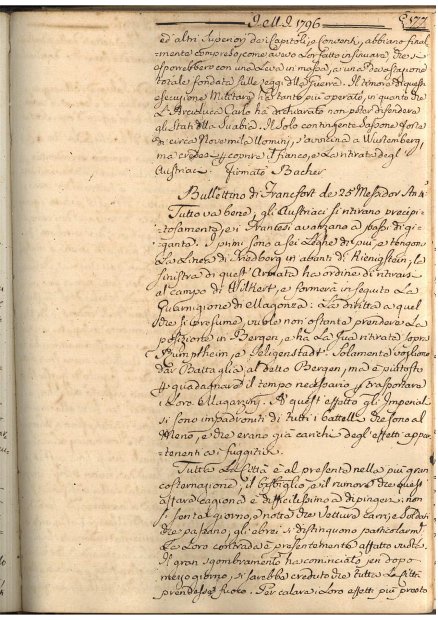 Dell' A. 1796. 177
ed altri Superiori dei Capitoli, e Conventi, abbiano final
mente compreso, come avevo Lor fatto insinuare, che s'
esporrebbero con una Leva in massa, a una Devastazione
totale fondata sulle leggi della Guerra. Il timore di questa
esecuzione Militare ha tanto più operato, in quanto che
L'Arciduca Carlo ha dichiarato non poter difendere
gli Stati della Suabia. Il solo contingente Sassone forte
di circa Novemila Uomini, s'avvicina a Wirtemberg,
ma credesi p coprire il fianco, e La ritirata degl'
Austriaci. Firmato Bacher
Bullettino di Francfort de 25 Messidor An. 4
Tutto va bene, gli Austriaci si ritirano precipi-
tosamente, e i Francesi avanzano a passi di gi-
gante. I primi sono a sei Leghe di qui, e tengono
La Linea di Friedberg in avanti di Kienigstein; la
sinistra di quest'Armata ha ordine di ritirarsi
al campo di Wilkert, e formerà in seguito La
Guarnigione di Magonza: La diritta a quel
che si presume, vuole non ostante prendere La
posizione in Bergen, e ha La sua ritirata sopra
Rumplheim, e Seligenstadt. Solamente vogliono
dar Battaglia al detto Bergen, ma è piuttosto
p guadagnare il tempo necessario p trasportare
i Loro Magazzini. A quest'effetto gli Imperiali
si sono impadroniti di tutti i battelli che sono al
Meno, e che erano già carichi degl'effetti appar-
tenenti ai fuggitivi.
Tutta La Città è al presente nella più gran
costernazione, il bisbiglio, e il rumore che quest'
affare cagiona è difficilissimo a dipingersi: non
si sente al giorno, a notte che Vetture, Carri, e Soldati
che passano, gli ebrei si distinguono particolarmte
La Loro contrada è presentemente affatto vuota.
Il gran sgombramento ha cominciato jeri dopo
mezzogiorno, si sarebbe creduto che tutta La Città
prendesse fuoco. Per calare i Loro effetti più presto